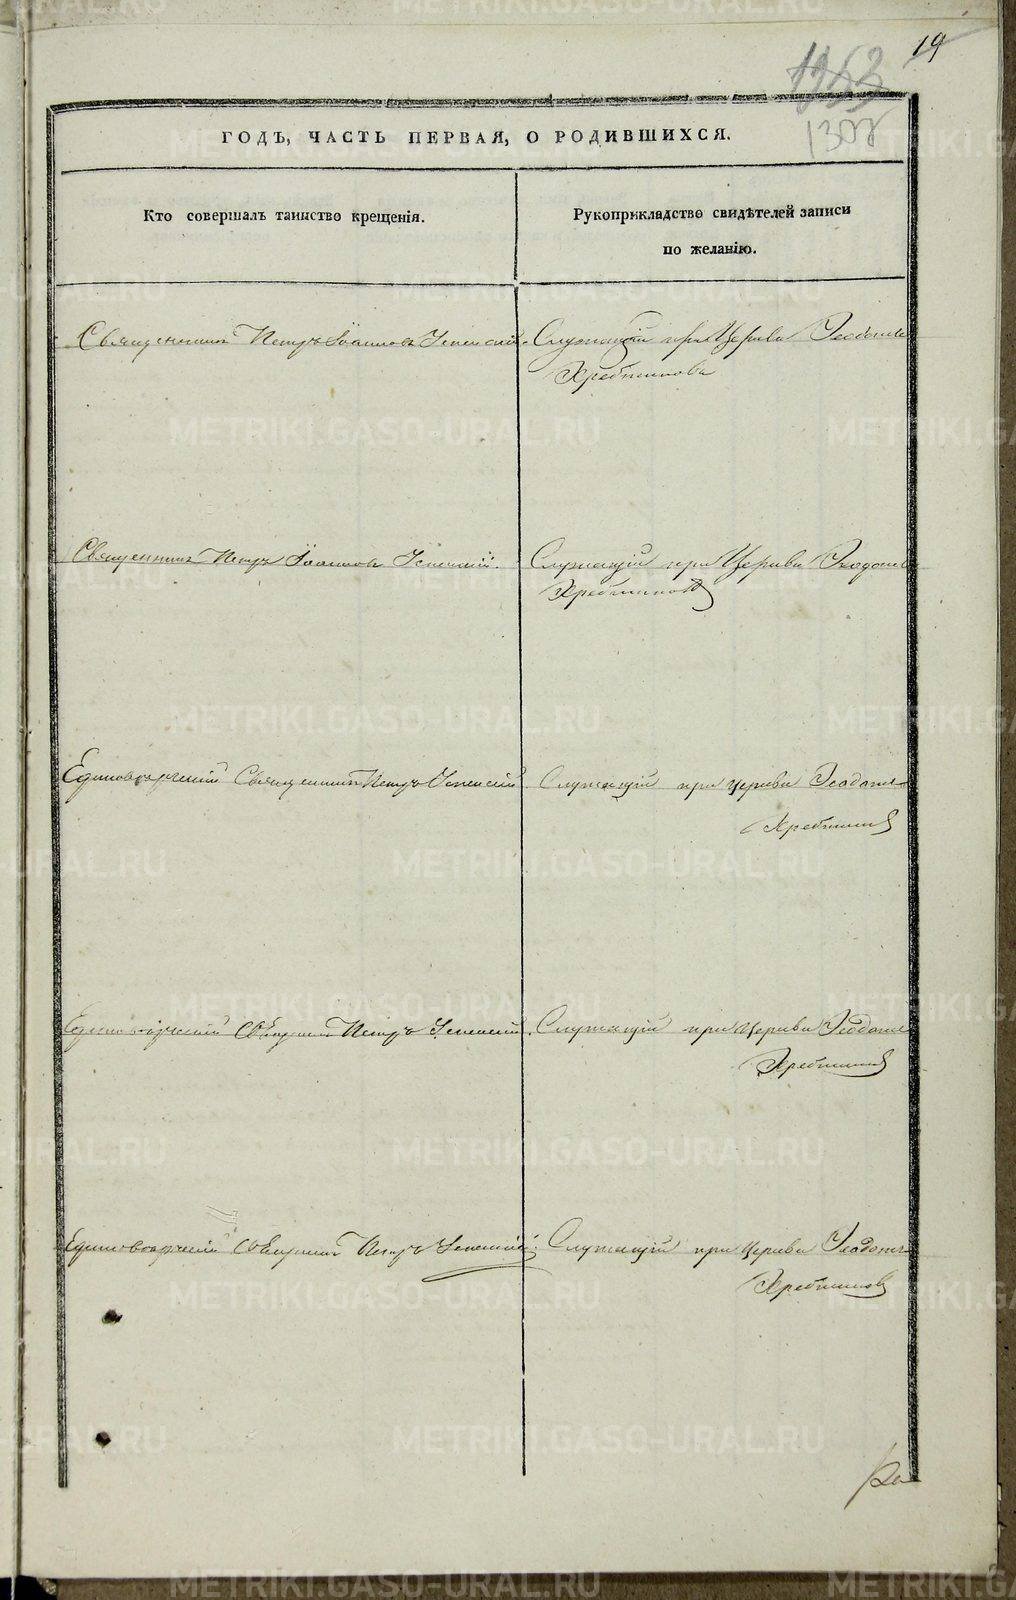 19
1353
1307
ГОДЪ, ЧАСТЬ ПЕРВАЯ, О РОДИВШИХСЯ.
Кто совершалъ таинство крещенія.
Рукоприкладство свидѣтелей записи
по желанію.
Священникъ Петръ Іоанновъ Успенскій.
Служащій при Церкви
Хребтиковъ
Священникъ Петръ Іоанновъ Успенскій.
Служащій при Церкви
Хребтиковъ
Единовѣрческій Священникъ Петръ Успенскій.
Служащій при церкви
Хребтиковъ
Единовѣрческій Священникъ Петръ Успенскій.
Служащій при Церкви
Хребтиковъ
Единовѣрческій Священникъ Петръ Успенскій.
Служащій при Церкви
Хребтиковъ
METRIKI.GASO-URAL.RU